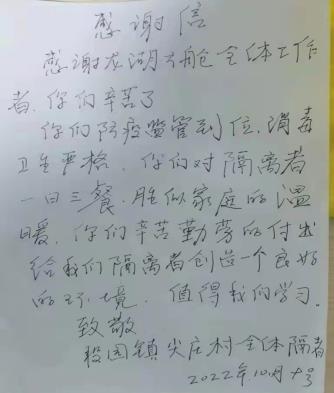 感谢信
感谢龙湖方舱全体工作
者.你们辛苦了
你们防疫监管到位.消毒
卫生严格.你们对隔离者
一日三餐.胜似家庭的温
暖.你们辛苦勤劳的付出
给我们隔离者创造一个良好
的环境.值得我们学习.
致敬
园镇尖庄村全体隔离者
2022年10月